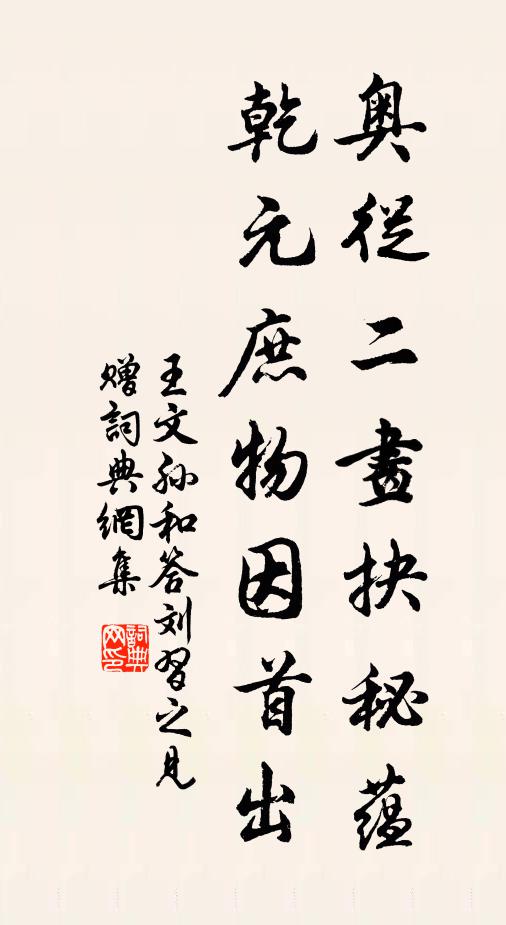 奧從二畫抉秘蘊
乾元庶物因首出
王文孙和答刘習之見
赠詞典網集
詞典網印